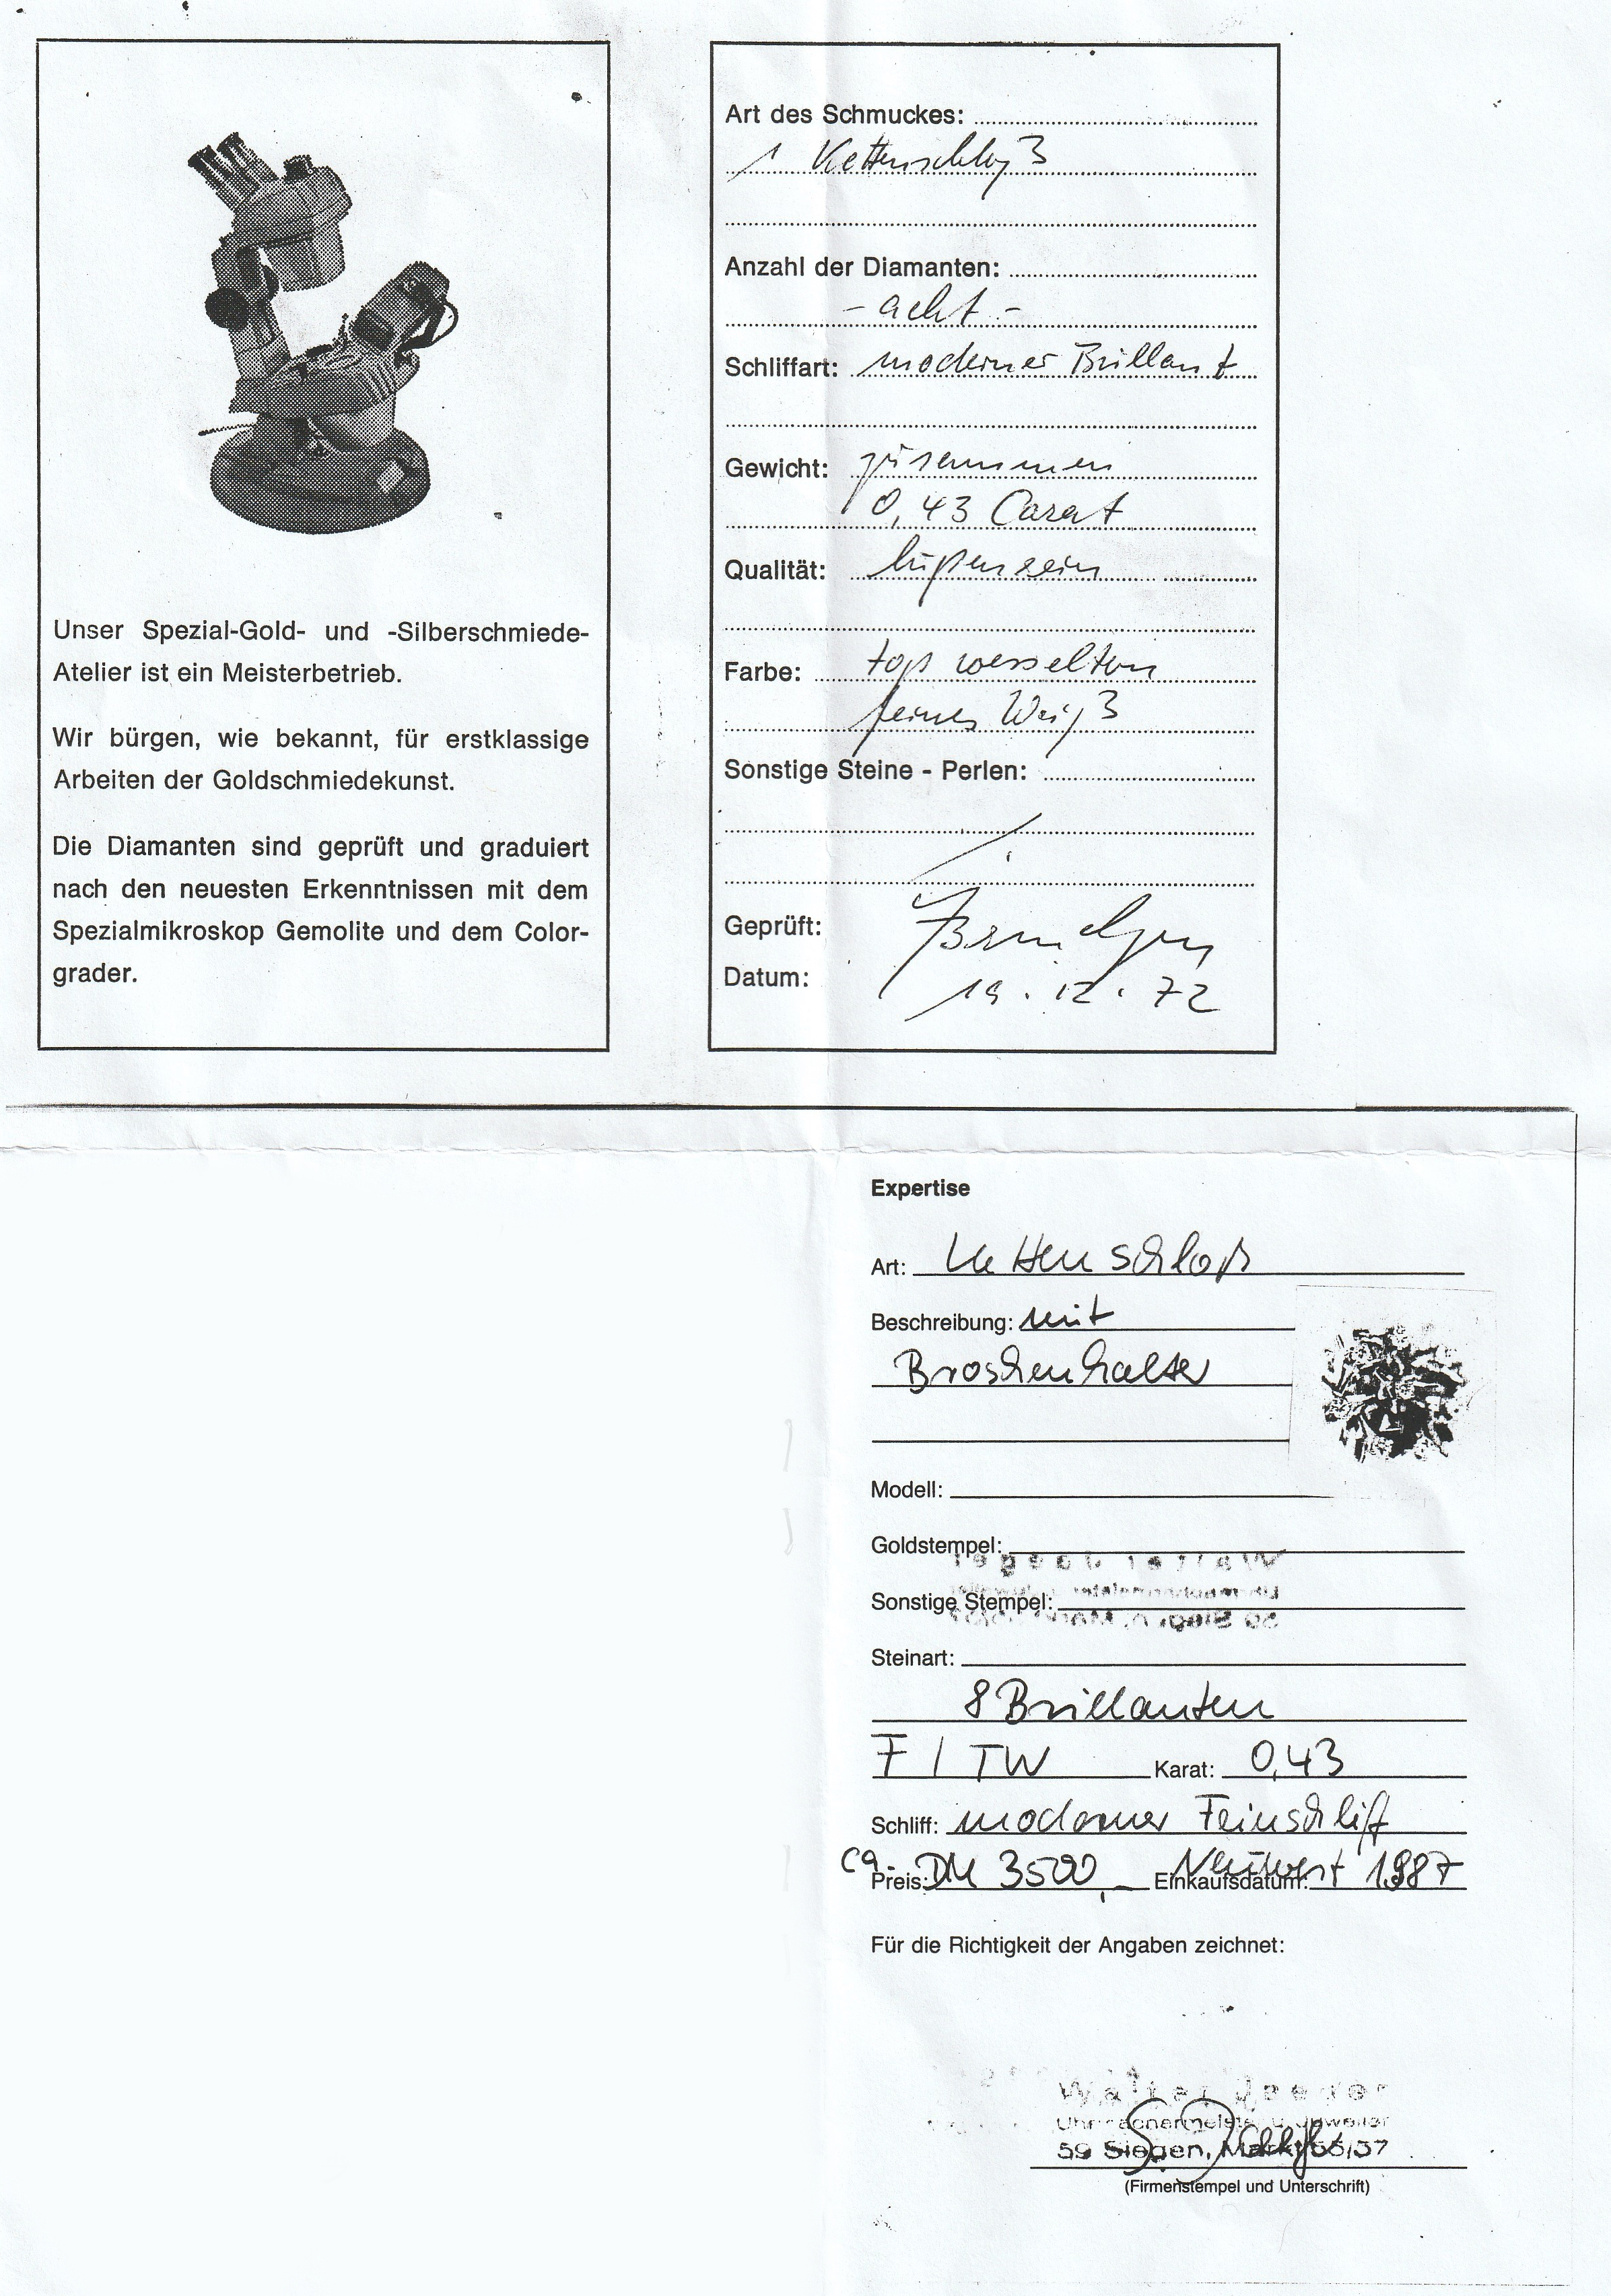 Unser Spezial-Gold- und -Silberschmiede-
Atelier ist ein Meisterbetrieb.
Wir bürgen, wie bekannt, für erstklassige
Arbeiten der Goldschmiedekunst.
Die Diamanten sind geprüft und graduiert
nach den neuesten Erkenntnissen mit dem
Spezialmikroskop Gemolite und dem Color-
grader.
Art des Schmuckes:
1 Kettenschloß
Anzahl der Diamanten:
- acht -
Schliffart: moderner Brillant
Gewicht: zusammen
0,43 Carat
Qualität: lupenrein
Farbe: top wesselton
feines Weiß
Sonstige Steine - Perlen:
Geprüft:
Datum: 19.12.72
Expertise
Art: Kettenschloß
Beschreibung: mit
Broschenhalter
Modell:
Goldstempel:
Sonstige Stempel:
Steinart:
8 Brillanten
F / TW Karat: 0,43
Schliff: moderner Feinschliff
ca. Preis: DM 3500,- Einkaufsdatum: Neuwert 1987
Für die Richtigkeit der Angaben zeichnet:
Walter Jaeger
Uhrmachermeister u. Juwelier
59 Siegen, Markt 35/37
(Firmenstempel und Unterschrift)